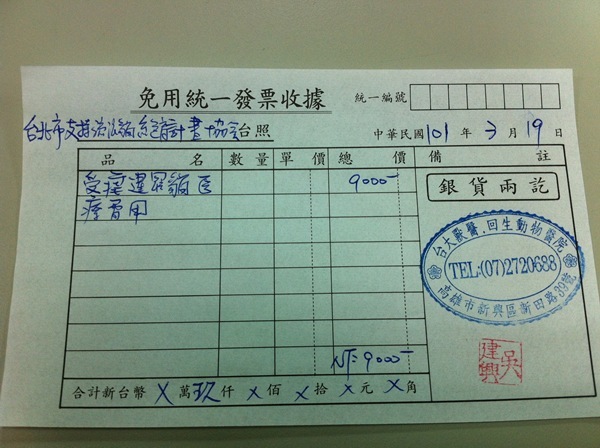 免用統一發票收據
統一編號
台北市支持流浪貓絕育計畫協會台照
中華民國101年3月19日
品名 數量 單價 總價 備註
受虐暹羅貓医 9000-
療費用
銀貨兩訖
台大獸醫.回生動物醫院
TEL:(07)2720688
高雄市新興區新田路39號
吳建興
NT:9000-
合計新台幣 X 萬 玖 仟 X 佰 X 拾 X 元 X 角